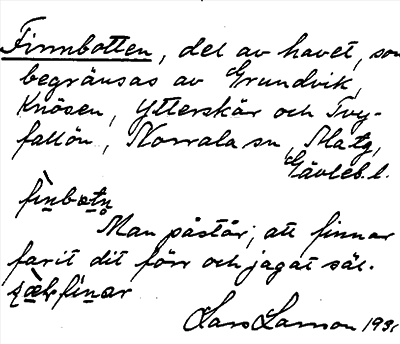 Finnbotten, del av havet, som
begränsas av Grundvik,
Knösen, Ytterskär och Tvy-
fallön, Norrala sn,
Gävleb. l.
fìnbɔtn
Man påstår, att finnar
farit dit förr och jagat säl.
Lars Larsson 193